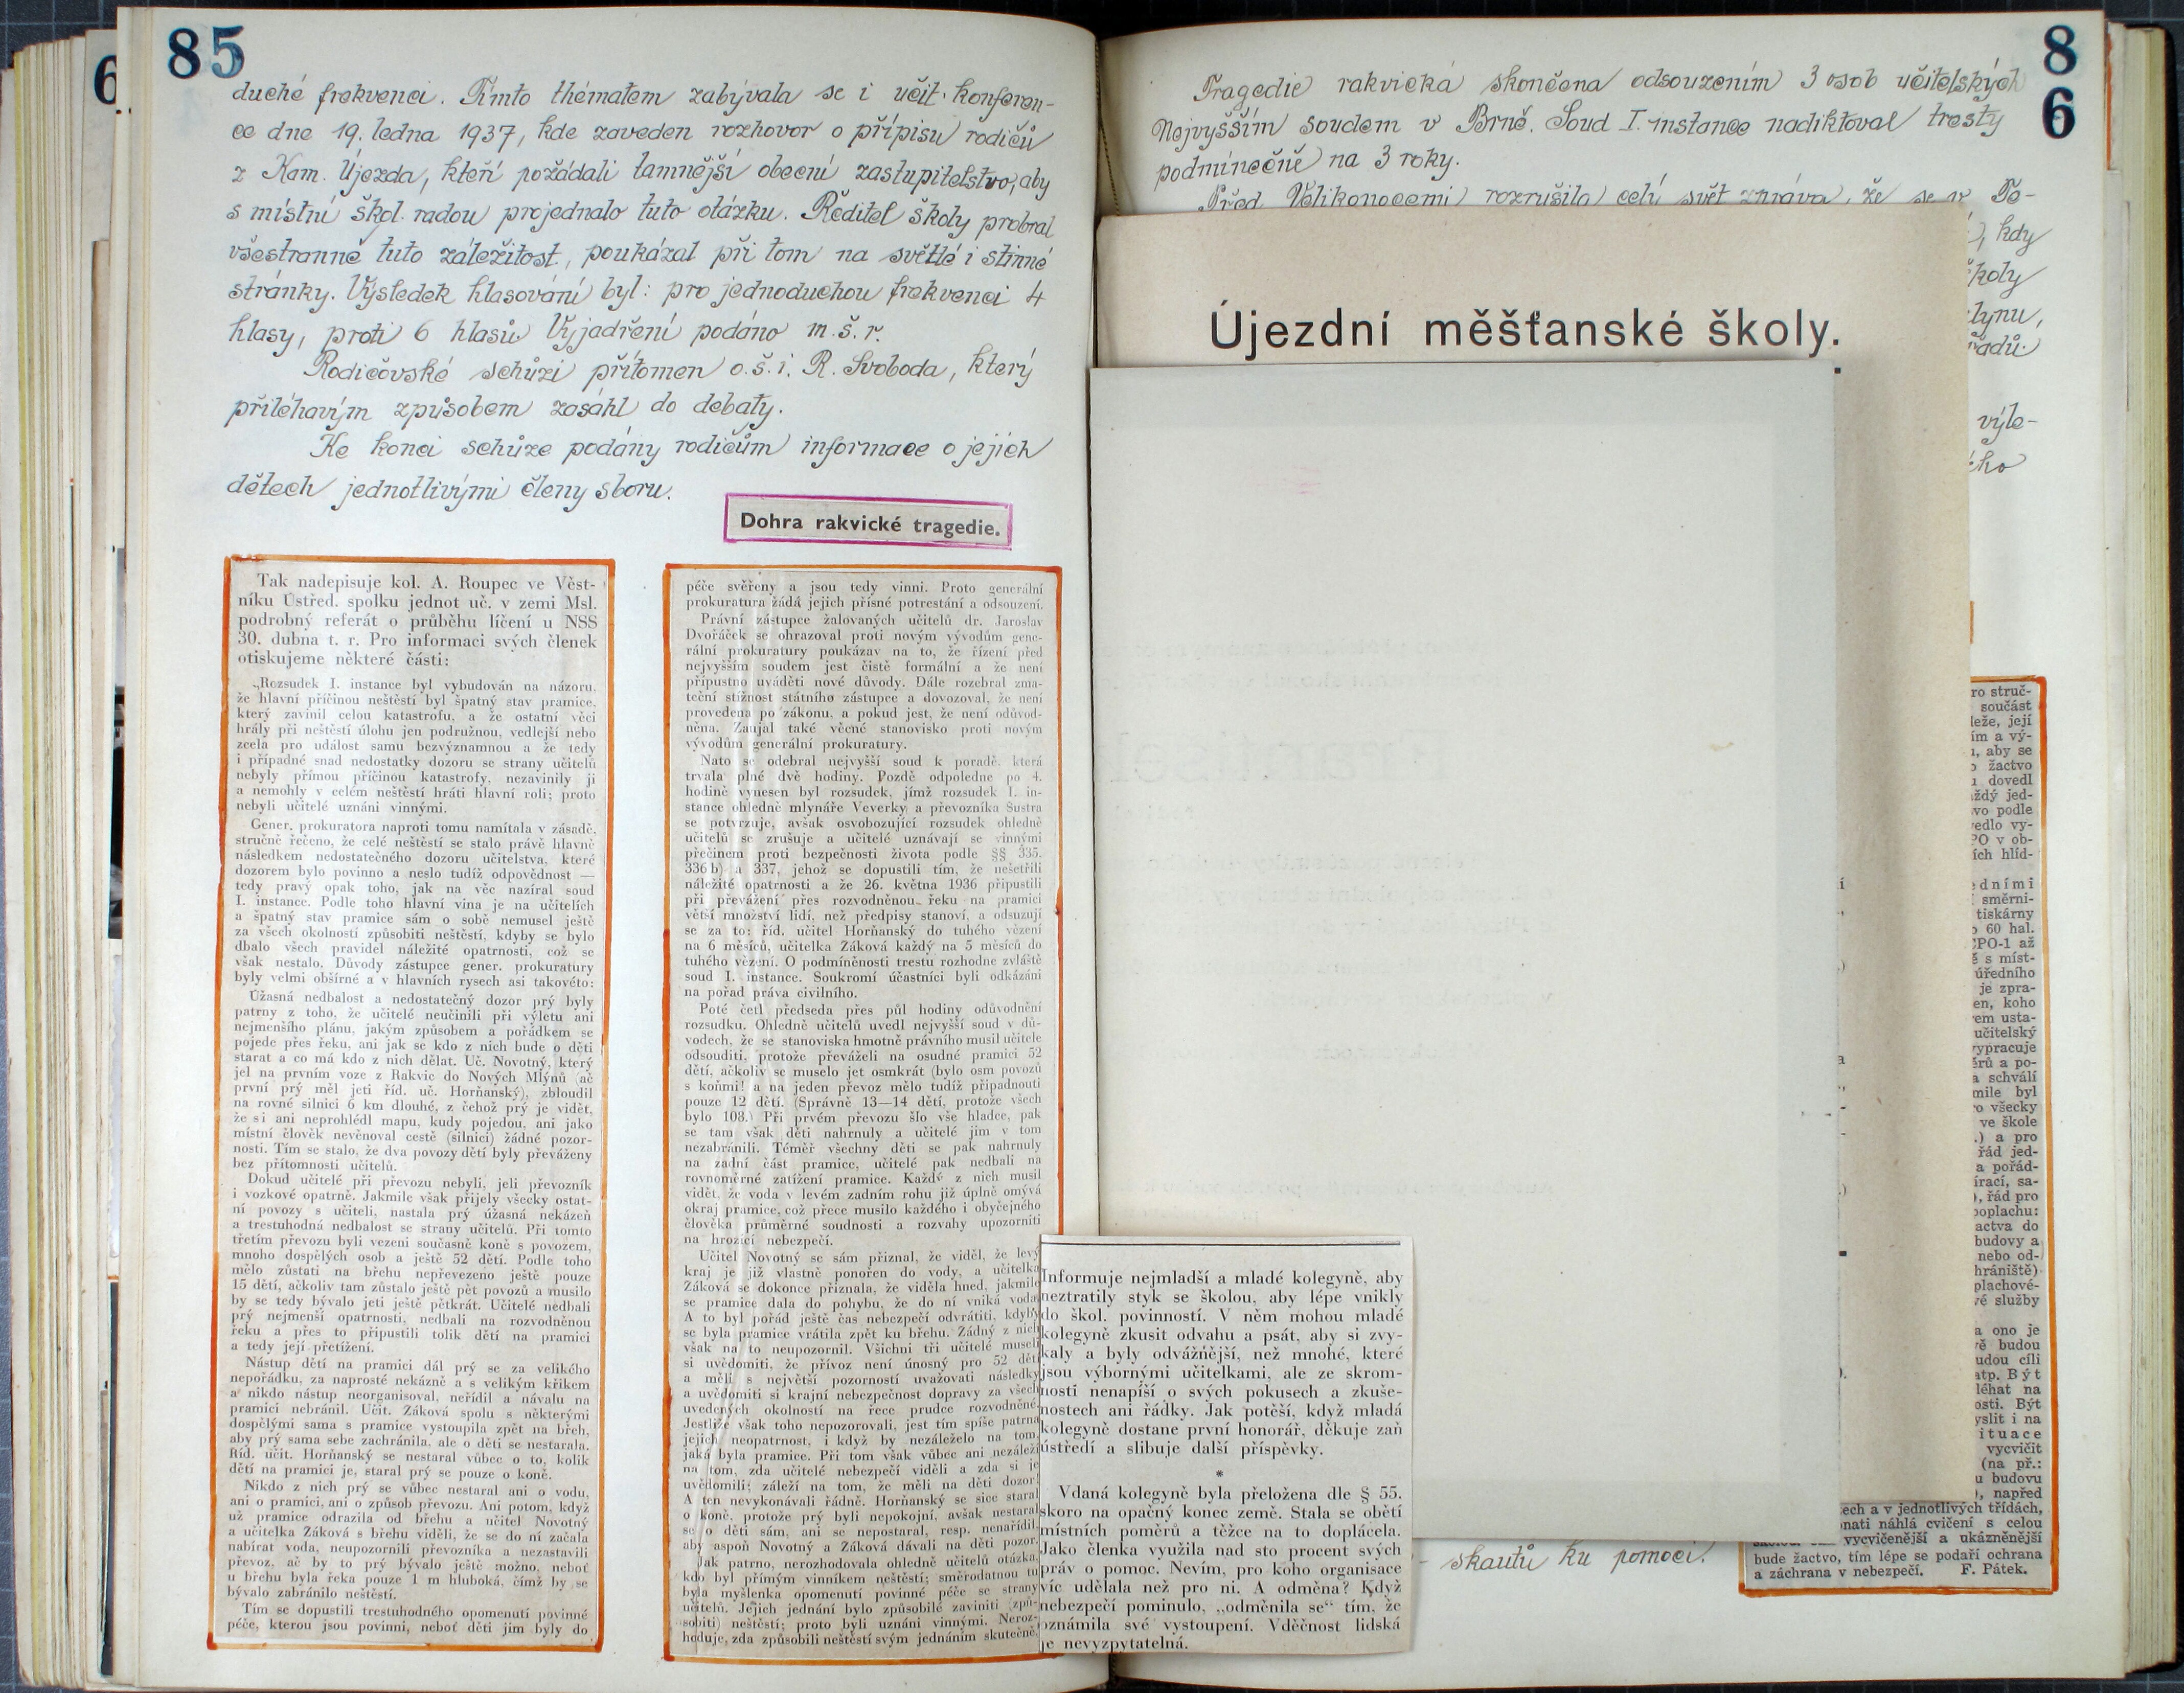 85
duché frekvenci. Tímto thématem zabývala se i učit. konferen-
ce dne 19. ledna 1937, kde zaveden rozhovor o přípisu rodičů
z Kam. Újezda, kteří požádali tamnější obecní zastupitelstvo, aby
s místní škol. radou projednalo tuto otázku. Ředitel školy probral
všestranně tuto záležitost, poukázal při tom na světlé i stinné
stránky. Výsledek hlasování byl: pro jednoduchou frekvenci 4
hlasy, proti 6 hlasů. Vyjadření podáno m.š.r.
Rodičovské schůzi přítomen o.š.i. R. Svoboda, který
přiléhavým způsobem zasáhl do debaty.
Ke konci schůze podány rodičům informace o jejich
dětech jednotlivými členy sboru.
Dohra rakvické tragedie.
Tak nadepisuje kol. A. Roupec ve Věst-
níku Ústřed. spolku jednot uč. v zemi Msl.
podrobný referát o průběhu líčení u NSS
30. dubna t. r. Pro informaci svých členek
otiskujeme některé části:
„Rozsudek I. instance byl vybudován na názoru,
že hlavní příčinou neštěstí byl špatný stav pramice,
který zavinil celou katastrofu, a že ostatní věci
hrály při neštěstí úlohu jen podružnou, vedlejší nebo
zcela pro událost samu bezvýznamnou a že tedy
i případné snad nedostatky dozoru se strany učitelů
nebyly přímou příčinou katastrofy, nezavinily ji
a nemohly v celém neštěstí hráti hlavní roli; proto
nebyli učitelé uznáni vinnými.
Gener. prokuratora naproti tomu namítala v zásadě,
stručně řečeno, že celé neštěstí se stalo právě hlavně
následkem nedostatečného dozoru učitelstva, které
dozorem bylo povinno a neslo tudíž odpovědnost —
tedy pravý opak toho, jak na věc nazíral soud
I. instance. Podle toho hlavní vina je na učitelích
a špatný stav pramice sám o sobě nemusel ještě
za všech okolností způsobiti neštěstí, kdyby se bylo
dbalo všech pravidel náležité opatrnosti, což se
však nestalo. Důvody zástupce gener. prokuratury
byly velmi obšírné a v hlavních rysech asi takovéto:
Úžasná nedbalost a nedostatečný dozor prý byly
patrny z toho, že učitelé neučinili při výletu ani
nejmenšího plánu, jakým způsobem a pořádkem se
pojede přes řeku, ani jak se kdo z nich bude o děti
starat a co má kdo z nich dělat. Uč. Novotný, který
jel na prvním voze z Rakvic do Nových Mlýnů (ač
první prý měl jeti říd. uč. Horňanský), zbloudil
na rovné silnici 6 km dlouhé, z čehož prý je vidět,
že si ani neprohlédl mapu, kudy pojedou, ani jako
místní člověk nevěnoval cestě (silnici) žádné pozor-
nosti. Tím se stalo, že dva povozy dětí byly převáženy
bez přítomnosti učitelů.
Dokud učitelé při převozu nebyli, jeli převozník
i vozkové opatrně. Jakmile však přijely všecky ostat-
ní povozy s učiteli, nastala prý úžasná nekázeň
a trestuhodná nedbalost se strany učitelů. Při tomto
třetím převozu byli vezeni současně koně s povozem,
mnoho dospělých osob a ještě 52 dětí. Podle toho
mělo zůstati na břehu nepřevezeno ještě pouze
15 dětí, ačkoliv tam zůstalo ještě pět povozů a musilo
by se tedy bývalo jeti ještě pětkrát. Učitelé nedbali
prý nejmenší opatrnosti, nedbali na rozvodněnou
řeku a přes to připustili tolik dětí na pramici
a tedy její přetížení.
Nástup dětí na pramici dál prý se za velikého
nepořádku, za naprosté nekázně a s velikým křikem
a nikdo nástup neorganisoval, neřídil a návalu na
pramici nebránil. Učit. Žáková spolu s některými
dospělými sama s pramice vystoupila zpět na břeh,
aby prý sama sebe zachránila, ale o děti se nestarala.
Říd. učit. Horňanský se nestaral vůbec o to, kolik
dětí na pramici je, staral prý se pouze o koně.
Nikdo z nich prý se vůbec nestaral ani o vodu,
ani o pramici, ani o způsob převozu. Ani potom, když
už pramice odrazila od břehu a učitel Novotný
a učitelka Žáková s břehu viděli, že se do ní začala
nabírat voda, neupozornili převozníka a nezastavili
převoz, ač by to prý bývalo ještě možno, neboť
u břehu byla řeka pouze 1 m hluboká, čímž by se
bývalo zabránilo neštěstí.
Tím se dopustili trestuhodného opomenutí povinné
péče, kterou jsou povinni, neboť děti jim byly do
péče svěřeny a jsou tedy vinni. Proto generální
prokuratura žádá jejich přísné potrestání a odsouzení.
Právní zástupce žalovaných učitelů dr. Jaroslav
Dvořáček se ohrazoval proti novým vývodům gene-
rální prokuratury poukázav na to, že řízení před
nejvyšším soudem jest čistě formální a že není
přípustno uváděti nové důvody. Dále rozebral zma-
teční stížnost státního zástupce a dovozoval, že není
provedena po zákonu, a pokud jest, že není odůvod-
něna. Zaujal také věcné stanovisko proti novým
vývodům generální prokuratury.
Nato se odebral nejvyšší soud k poradě, která
trvala plné dvě hodiny. Pozdě odpoledne po 4.
hodině vynesen byl rozsudek, jímž rozsudek I. in-
stance ohledně mlynáře Veverky a převozníka Šustra
se potvrzuje, avšak osvobozující rozsudek ohledně
učitelů se zrušuje a učitelé uznávají se vinnými
přečinem proti bezpečnosti života podle §§ 335,
336 b) a 337, jehož se dopustili tím, že nešetřili
náležité opatrnosti a že 26. května 1936 připustili
při převážení přes rozvodněnou řeku na pramici
větší množství lidí, než předpisy stanoví, a odsuzují
se za to: říd. učitel Horňanský do tuhého vězení
na 6 měsíců, učitelka Žáková každý na 5 měsíců do
tuhého vězení. O podmíněnosti trestu rozhodne zvláště
soud I. instance. Soukromí účastníci byli odkázáni
na pořad práva civilního.
Poté četl předseda přes půl hodiny odůvodnění
rozsudku. Ohledně učitelů uvedl nejvyšší soud v dů-
vodech, že se stanoviska hmotně právního musil učitele
odsouditi, protože převáželi na osudné pramici 52
dětí, ačkoliv se muselo jet osmkrát (bylo osm povozů
s koňmi! a na jeden převoz mělo tudíž připadnouti
pouze 12 dětí. (Správně 13—14 dětí, protože všech
bylo 108.) Při prvém převozu šlo vše hladce, pak
se tam však děti nahrnuly a učitelé jim v tom
nezabránili. Téměř všechny děti se pak nahrnuly
na zadní část pramice, učitelé pak nedbali na
rovnoměrné zatížení pramice. Každý z nich musil
vidět, že voda v levém zadním rohu již úplně omývá
okraj pramice, což přece musilo každého i obyčejného
člověka průměrné soudnosti a rozvahy upozorniti
na hrozící nebezpečí.
Učitel Novotný se sám přiznal, že viděl, že levý
kraj je již vlastně ponořen do vody, a učitelka
Žáková se dokonce přiznala, že viděla hned, jakmile
se pramice dala do pohybu, že do ní vniká voda.
A to byl pořád ještě čas nebezpečí odvrátiti, kdyby
se byla pramice vrátila zpět ku břehu. Žádný z nich
však na to neupozornil. Všichni tři učitelé museli
si uvědomiti, že přívoz není únosný pro 52 dětí
a měli s největší pozorností uvažovati následky
a uvědomiti si krajní nebezpečnost dopravy za všech
uvedených okolností na řece prudce rozvodněné.
Jestliže však toho nepozorovali, jest tím spíše patrna
jejich neopatrnost, i když by nezáleželo na tom,
jaká byla pramice. Při tom však vůbec ani nezáleží
na tom, zda učitelé nebezpečí viděli a zda si je
uvědomili; záleží na tom, že měli na děti dozor!
A ten nevykonávali řádně. Horňanský se sice staral
o koně, protože prý byli nepokojní, avšak nestaral
se o děti sám, ani se nepostaral, resp. nenařídil,
aby aspoň Novotný a Žáková dávali na děti pozor.
Jak patrno, nerozhodovala ohledně učitelů otázka,
kdo byl přímým vinníkem neštěstí; směrodatnou tu
byla myšlenka opomenutí povinné péče se strany
učitelů. Jejich jednání bylo způsobilé zaviniti (způ-
sobiti) neštěstí; proto byli uznáni vinnými. Neroz-
hoduje, zda způsobili neštěstí svým jednáním skutečně,
Informuje nejmladší a mladé kolegyně, aby
neztratily styk se školou, aby lépe vnikly
do škol. povinností. V něm mohou mladé
kolegyně zkusit odvahu a psát, aby si zvy-
kaly a byly odvážnější, než mnohé, které
jsou výbornými učitelkami, ale ze skrom-
nosti nenapíší o svých pokusech a zkuše-
nostech ani řádky. Jak potěší, když mladá
kolegyně dostane první honorář, děkuje zaň
ústředí a slibuje další příspěvky.
*
Vdaná kolegyně byla přeložena dle § 55.
skoro na opačný konec země. Stala se obětí
místních poměrů a těžce na to doplácela.
Jako členka využila nad sto procent svých
práv o pomoc. Nevím, pro koho organisace
víc udělala než pro ni. A odměna? Když
nebezpečí pominulo, „odměnila se“ tím, že
oznámila své vystoupení. Vděčnost lidská
je nevyzpytatelná.
86
Tragedie rakvická skončena odsouzením 3 osob učitelských
Nejvyšším soudem v Brně. Soud I. instance nadiktoval tresty
podmínečně na 3 roky.
Před Velikonocemi rozrušila celý svět zpráva, že se v Te-
, kdy
školy
lynu,
řadů.
výle-
ého
Újezdní měšťanské školy.
ro struč-
součást
leže, její
ím a vý-
, aby se
o žactvo
u dovedl
ždý jed-
vo podle
vedlo vy-
PO v ob-
ích hlíd-
edními
směrni-
tiskárny
o 60 hal.
CPO-1 až
ě s míst-
úředního
je zpra-
en, koho
rem usta-
učitelský
vypracuje
ěrů a po-
a schválí
mile byl
o všecky
ve škole
.) a pro
řád jed-
a pořád-
írací, sa-
), řád pro
poplachu:
actva do
budovy a
nebo od-
hrániště)
plachové-
vé služby
a ono je
vě budou
udou cíli
atp. Být
léhat na
osti. Být
yslit i na
ituace
vycvičit
(na př.:
u budovu
), napřed
ech a v jednotlivých třídách,
nati náhlá cvičení s celou
vycvičenější a ukázněnější
bude žactvo, tím lépe se podaří ochrana
a záchrana v nebezpečí. F. Pátek.
- skautů ku pomoci.